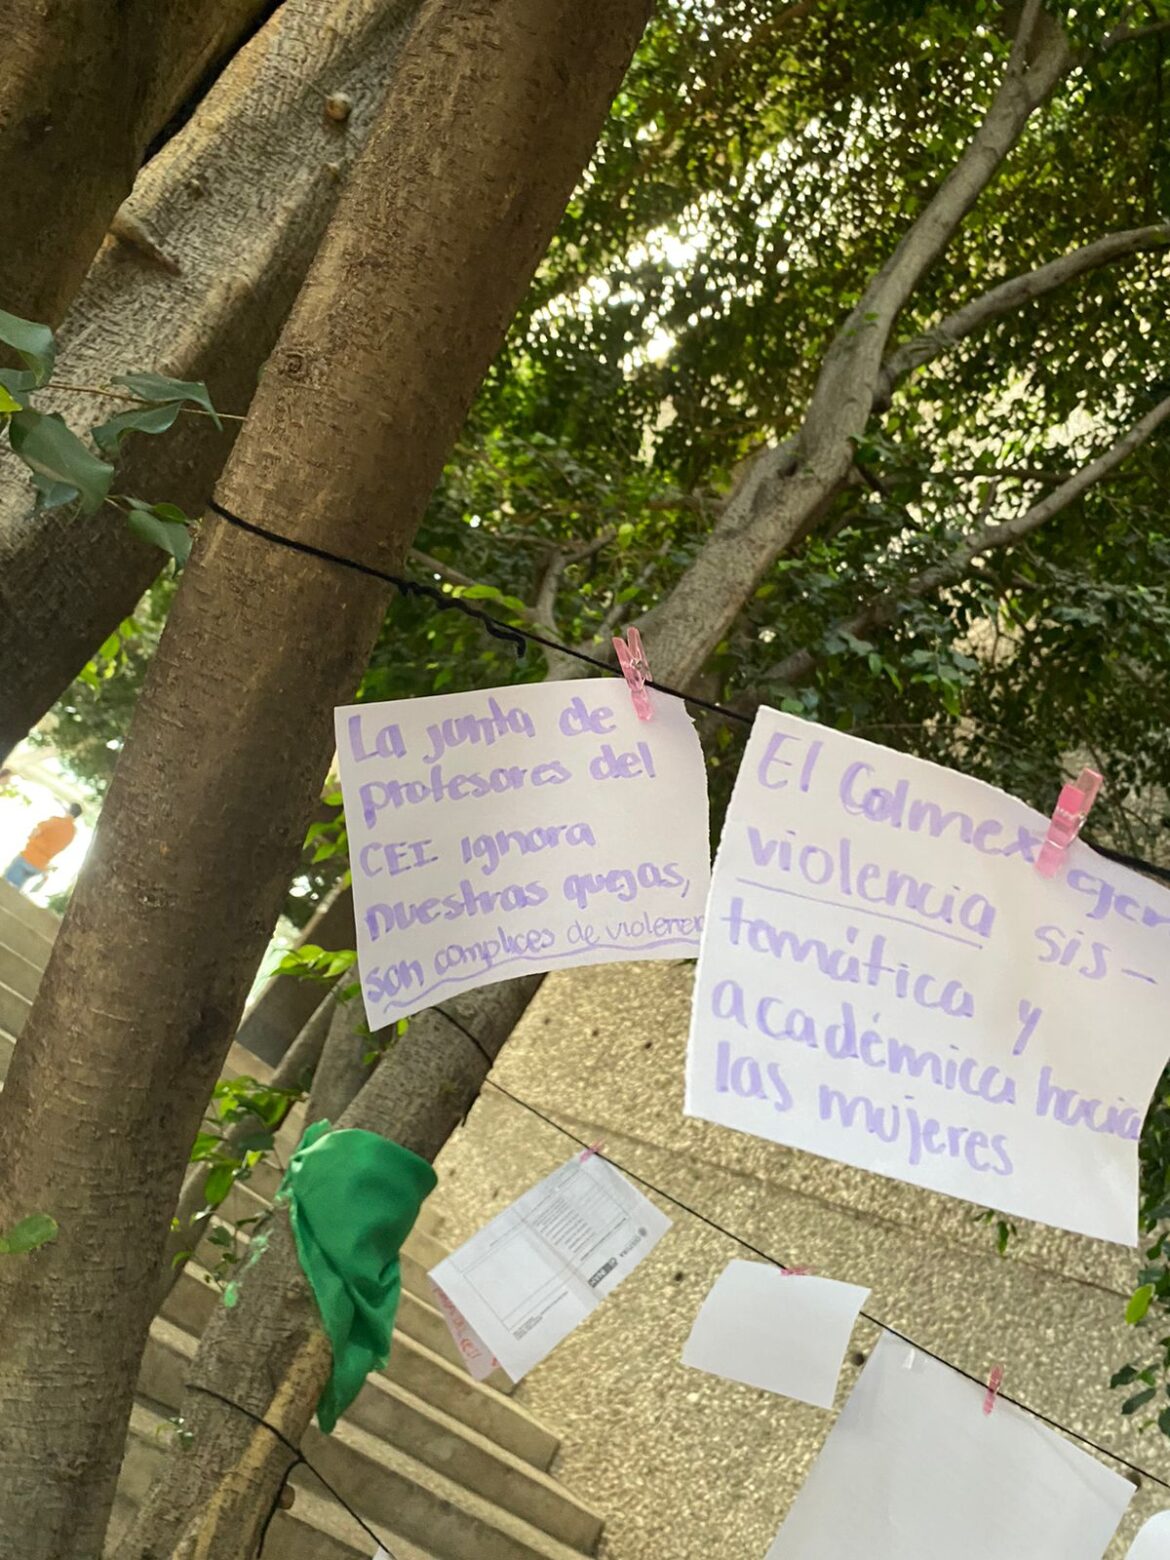 La junta de
profesores del
CEI ignora
nuestras quejas,
son complices de violencia
El Colmex ejer
violencia sis-
temática y
académica hacia
las mujeres